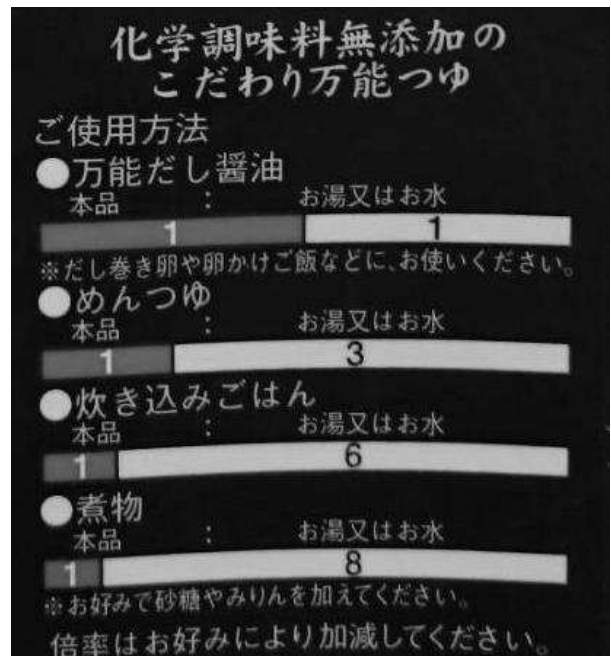 化学調味料無添加の
こだわり万能つゆ
ご使用方法
●万能だし醤油
本品 : お湯又はお水
1 1
※だし巻き卵や卵かけご飯などに、お使いください。
●めんつゆ
本品 : お湯又はお水
1 3
●炊き込みごはん
本品 : お湯又はお水
1 6
●煮物
本品 : お湯又はお水
1 8
※お好みで砂糖やみりんを加えてください。
倍率はお好みにより加減してください。